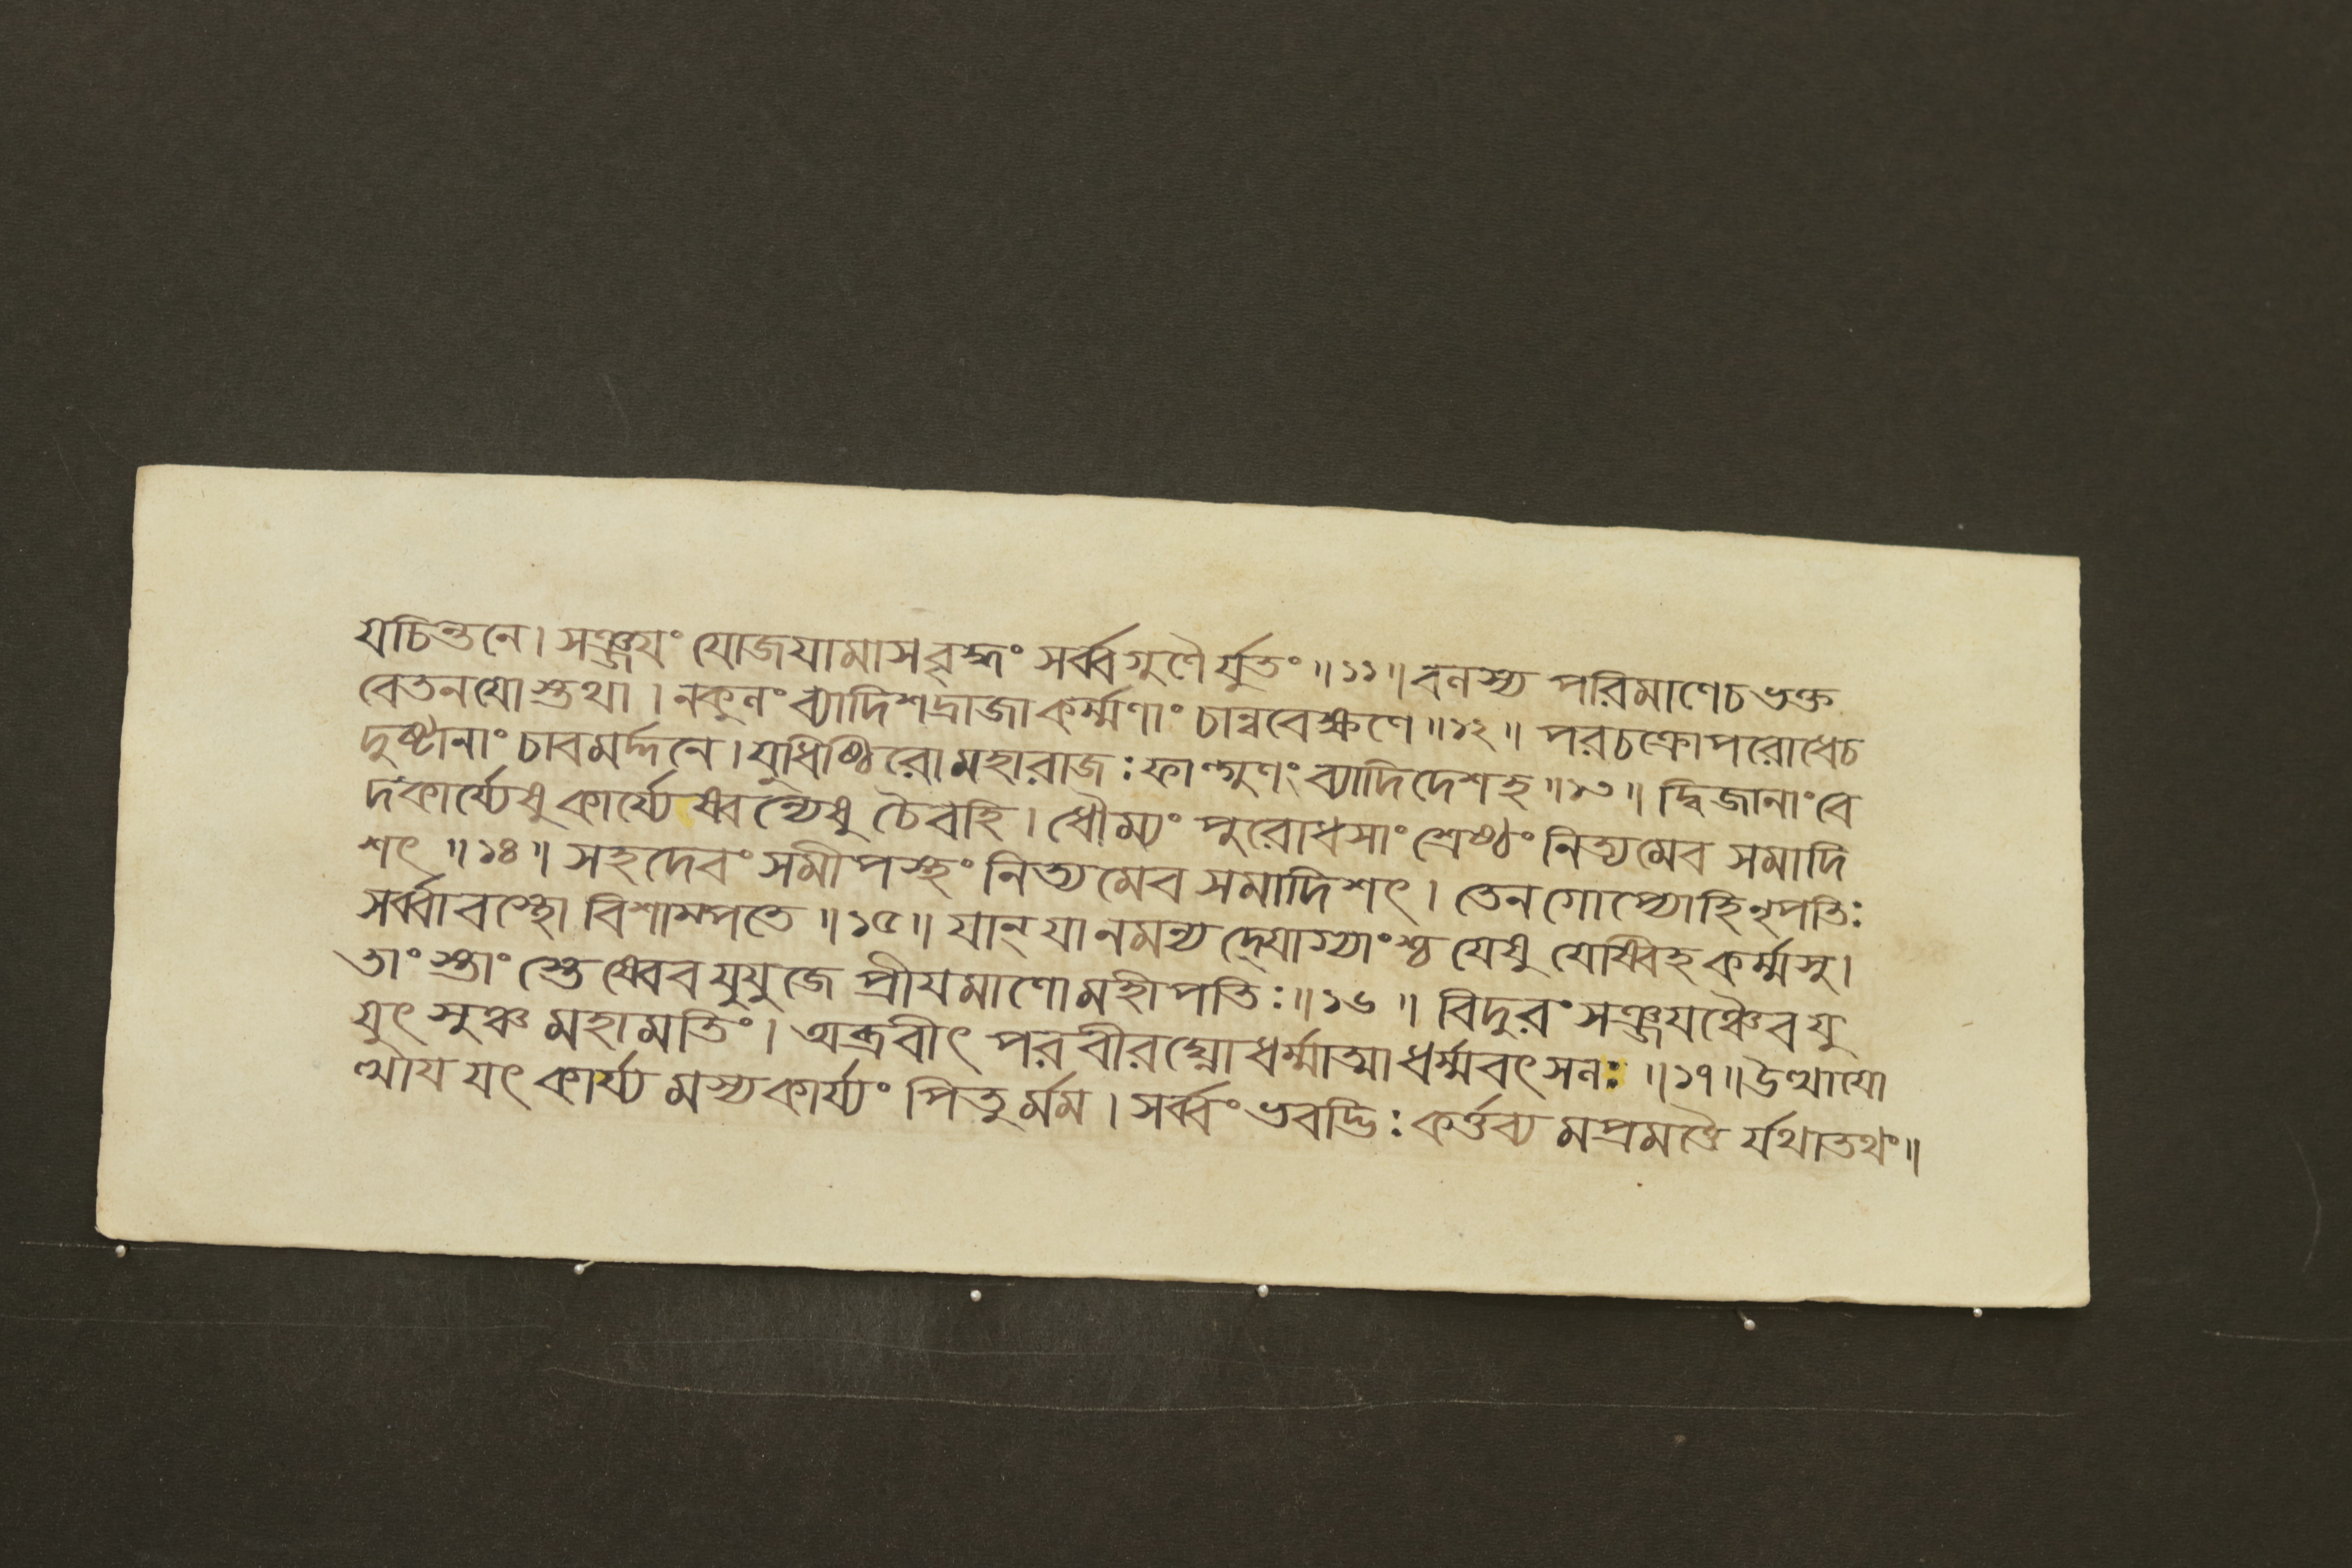 যচিন্তনে। সঞ্জয়ং যোজয়ামাসবৃদ্ধং সর্ব্বগুণৈর্যুতং॥১১॥ বলস্য পরিমাণেচভক্ত
বেতনয়োস্তথা। নকুলং ব্যাদিশদ্রাজাকর্ম্মণাং চান্ববেক্ষণে॥১২॥ পরচক্রোপরোধেচ
দুষ্টানাং চাবমর্দ্দনে। যুধিষ্ঠিরোমহারাজঃফাল্গুণং ব্যাদিদেশহ॥১৩॥ দ্বিজানাংবে
দকার্য্যেষুকার্য্যেষ্বন্যেষু চৈবহি। ধৌম্যং পুরোধসাং শ্রেষ্ঠং নিত্যমেব সমাদি
শৎ॥১৪॥ সহদেবং সমীপস্থং নিত্যমেব সমাদিশৎ। তেনগোপ্যোহিনৃপতিঃ
সর্ব্বাবস্থো বিশাম্পতে॥১৫॥ যান্ যানমন্যদ্যোগ্যাংশ্চ যেষু যেষ্বিহকর্ম্মসু।
তাংস্তাংস্তেষ্বেবযুযুজে প্রীয়মাণোমহীপতিঃ॥১৬॥ বিদুরংসঞ্জয়ঞ্চৈবযু
যুৎসুঞ্চ মহামতিং। অব্রবীৎ পরবীরঘ্নোধর্ম্মাত্মাধর্ম্মবৎসলঃ॥১৭॥উত্থায়ো
ত্থায় যৎকার্য্য মস্যকার্য্যং পিতুর্মম। সর্ব্বং ভবদ্ভিঃ কর্ত্তব্য মপ্রমত্তৈ র্যথাতথং॥